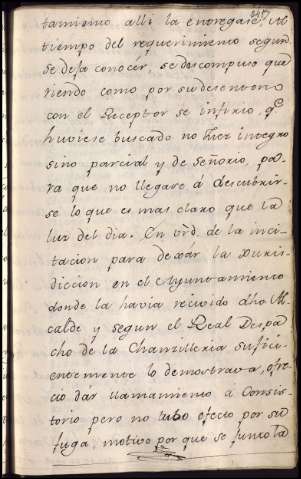 tamismo alli la entregase, al
tiempo del requerimiento segun
se deja conocer, se descompuso que
riendo como por su desentono
con el Receptor se infirio, qe
huviese buscado no Juez integro
sino parcial y de señorio, pa-
ra que no llegare á descubrir-
se lo que es mas claro que la
luz del dia. En vrd. de la inci-
tacion para dexar la Xuris-
diccion en el Ayuntamiento
donde la havia recivido dho Al
calde y segun el Real Despa
cho de la Chanzilleria sufici-
entemente lo demostrava, ofre
cio dár llamamiento a Consis-
torio pero no tubo efecto por su
fuga, motivo por que se junto la